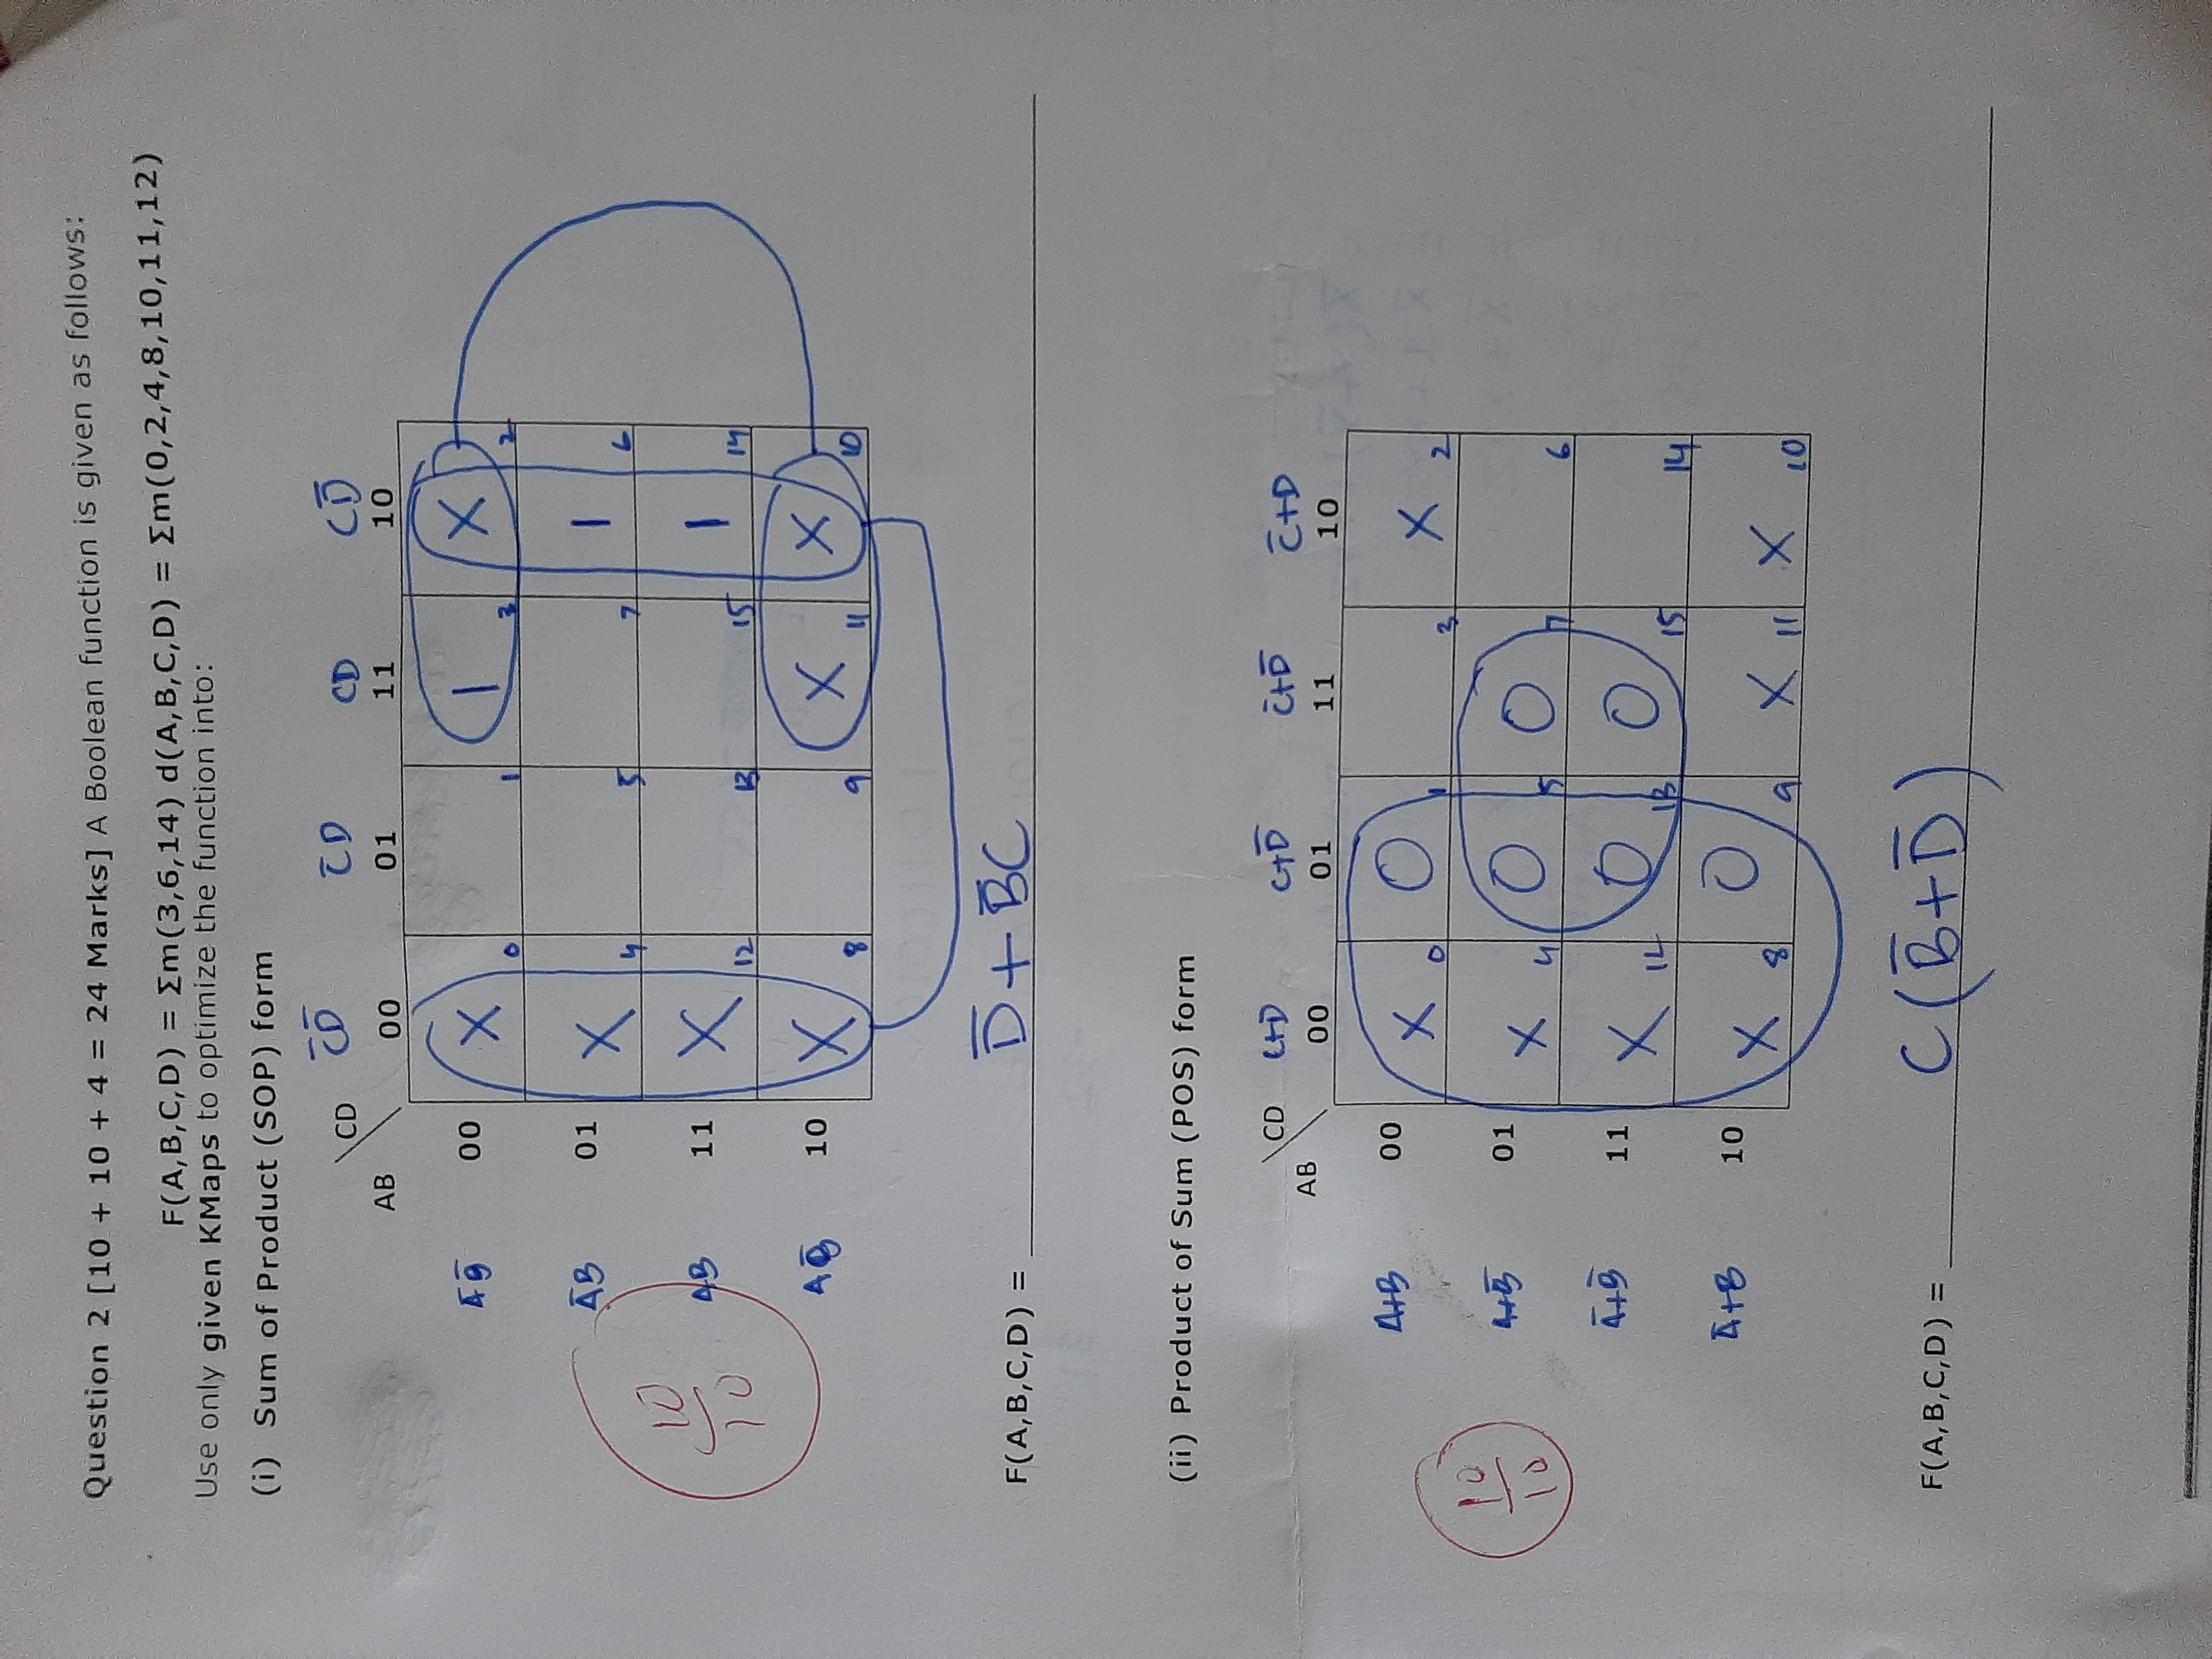 Question 2 [10 + 10 + 4 = 24 Marks] A Boolean function is given as follows:
F(A,B,C,D) = Σm(3,6,14) d(A,B,C,D) = Σm(0,2,4,8,10,11,12)
Use only given KMaps to optimize the function into:
(i) Sum of Product (SOP) form
C̅D̅ C̅D CD CD̅
CD
AB 00 01 11 10
A̅B̅ 00 X 0 1 1 3 X 2
A̅B 01 X 4 5 7 1 6
10/10
AB 11 X 12 13 15 1 14
AB̅ 10 X 8 9 X 11 X 10
F(A,B,C,D) = D̅ + B̅C
(ii) Product of Sum (POS) form
CD C+D C+D̅ C̅+D̅ C̅+D
AB 00 01 11 10
A+B 00 X 0 0 1 3 X 2
A+B̅ 01 X 4 0 5 0 7 6
10/10
A̅+B̅ 11 X 12 0 13 0 15 14
A̅+B 10 X 8 0 9 X 11 X 10
F(A,B,C,D) = C(B̅+D̅)